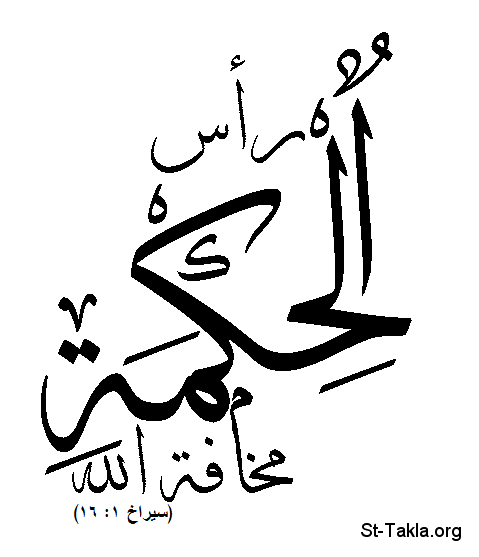 رأس
الحِكْمَةِ
مخافة الله
(سيراخ ١: ١٦)
St-Takla.org